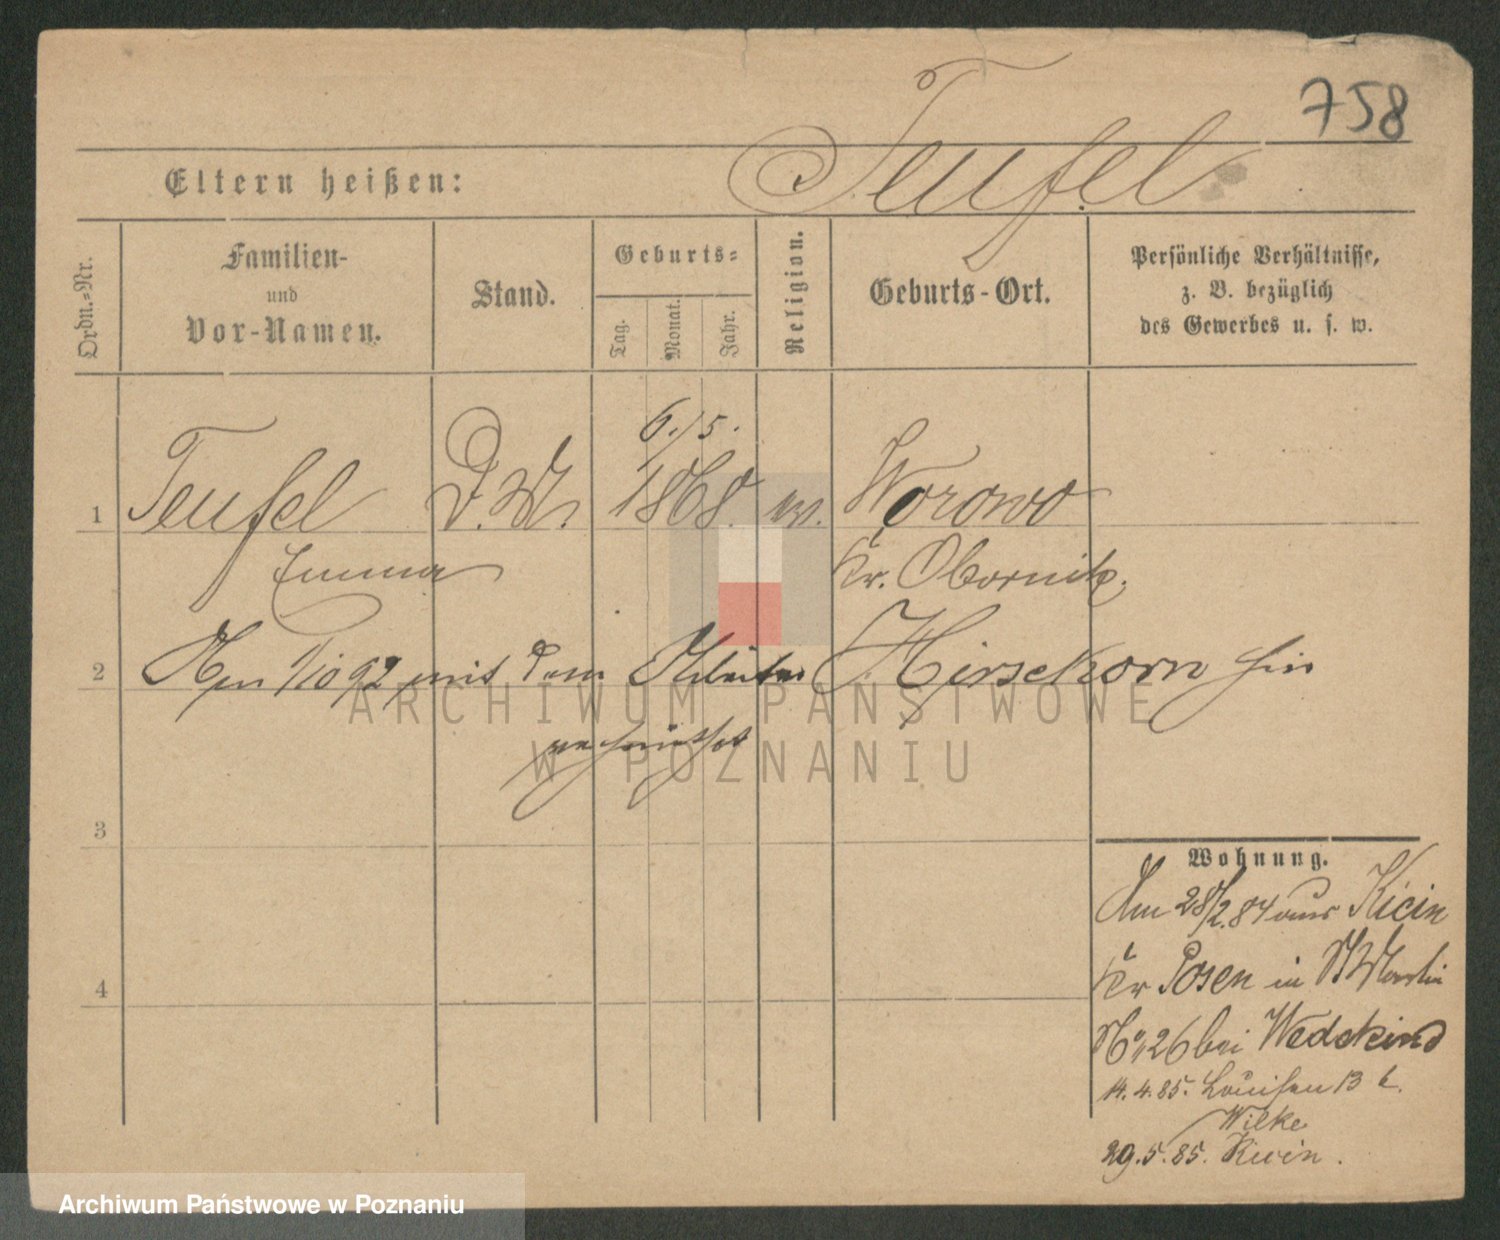 758
Teufel
Eltern heißen:
Ordn.-Nr.
Familien-
und
Vor-Namen.
Stand.
Geburts-
Tag.
Monat.
Jahr.
Religion.
Geburts-Ort.
Persönliche Verhältnisse,
z. B. bezüglich
des Gewerbes u. s. w.
6./5.
1 Teufel D.M. 1868. Worowo
Emma Kr. Obornik.
2 Am 1/10 92 mit dem Arbeiter Hirsekorn hier
verheirathet
ARCHIWUM PAŃSTWOWE
W POZNANIU
3
4
Wohnung.
Am 28/2.84 aus Kicin
Kr Posen in St Martin
No 26 bei Wedekind
14.4.85. Louisen 13 b.
Wilke
29.5.85. Kicin.
Archiwum Państwowe w Poznaniu